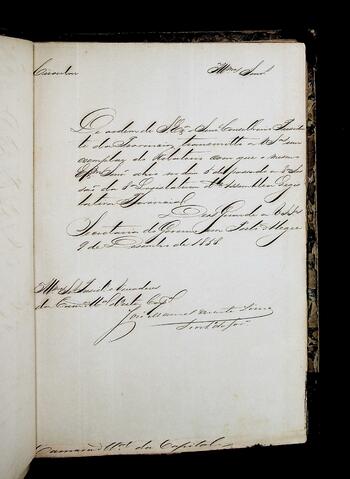 Circular Illmos Snrs
De ordem de S. Ex. o Snr Conselheiro Preside
te da Provincia, transmitto a V. Sas um
exemplar do Relatorio com que o mesmo
Exmo Snr abrio no dia 5 do passado a 2ª Ses
são da 8ª Legislatura da Assemblea Legis
lativa Provincial.
Deos Guarde a V. Sas
Secretaria do Governo em Porto Alegre
9 de Dezembro de 1858.
Illmos Snrs Presidente e Vereadores
da Camara Mal desta Capal
José
Camara Mal da Capital